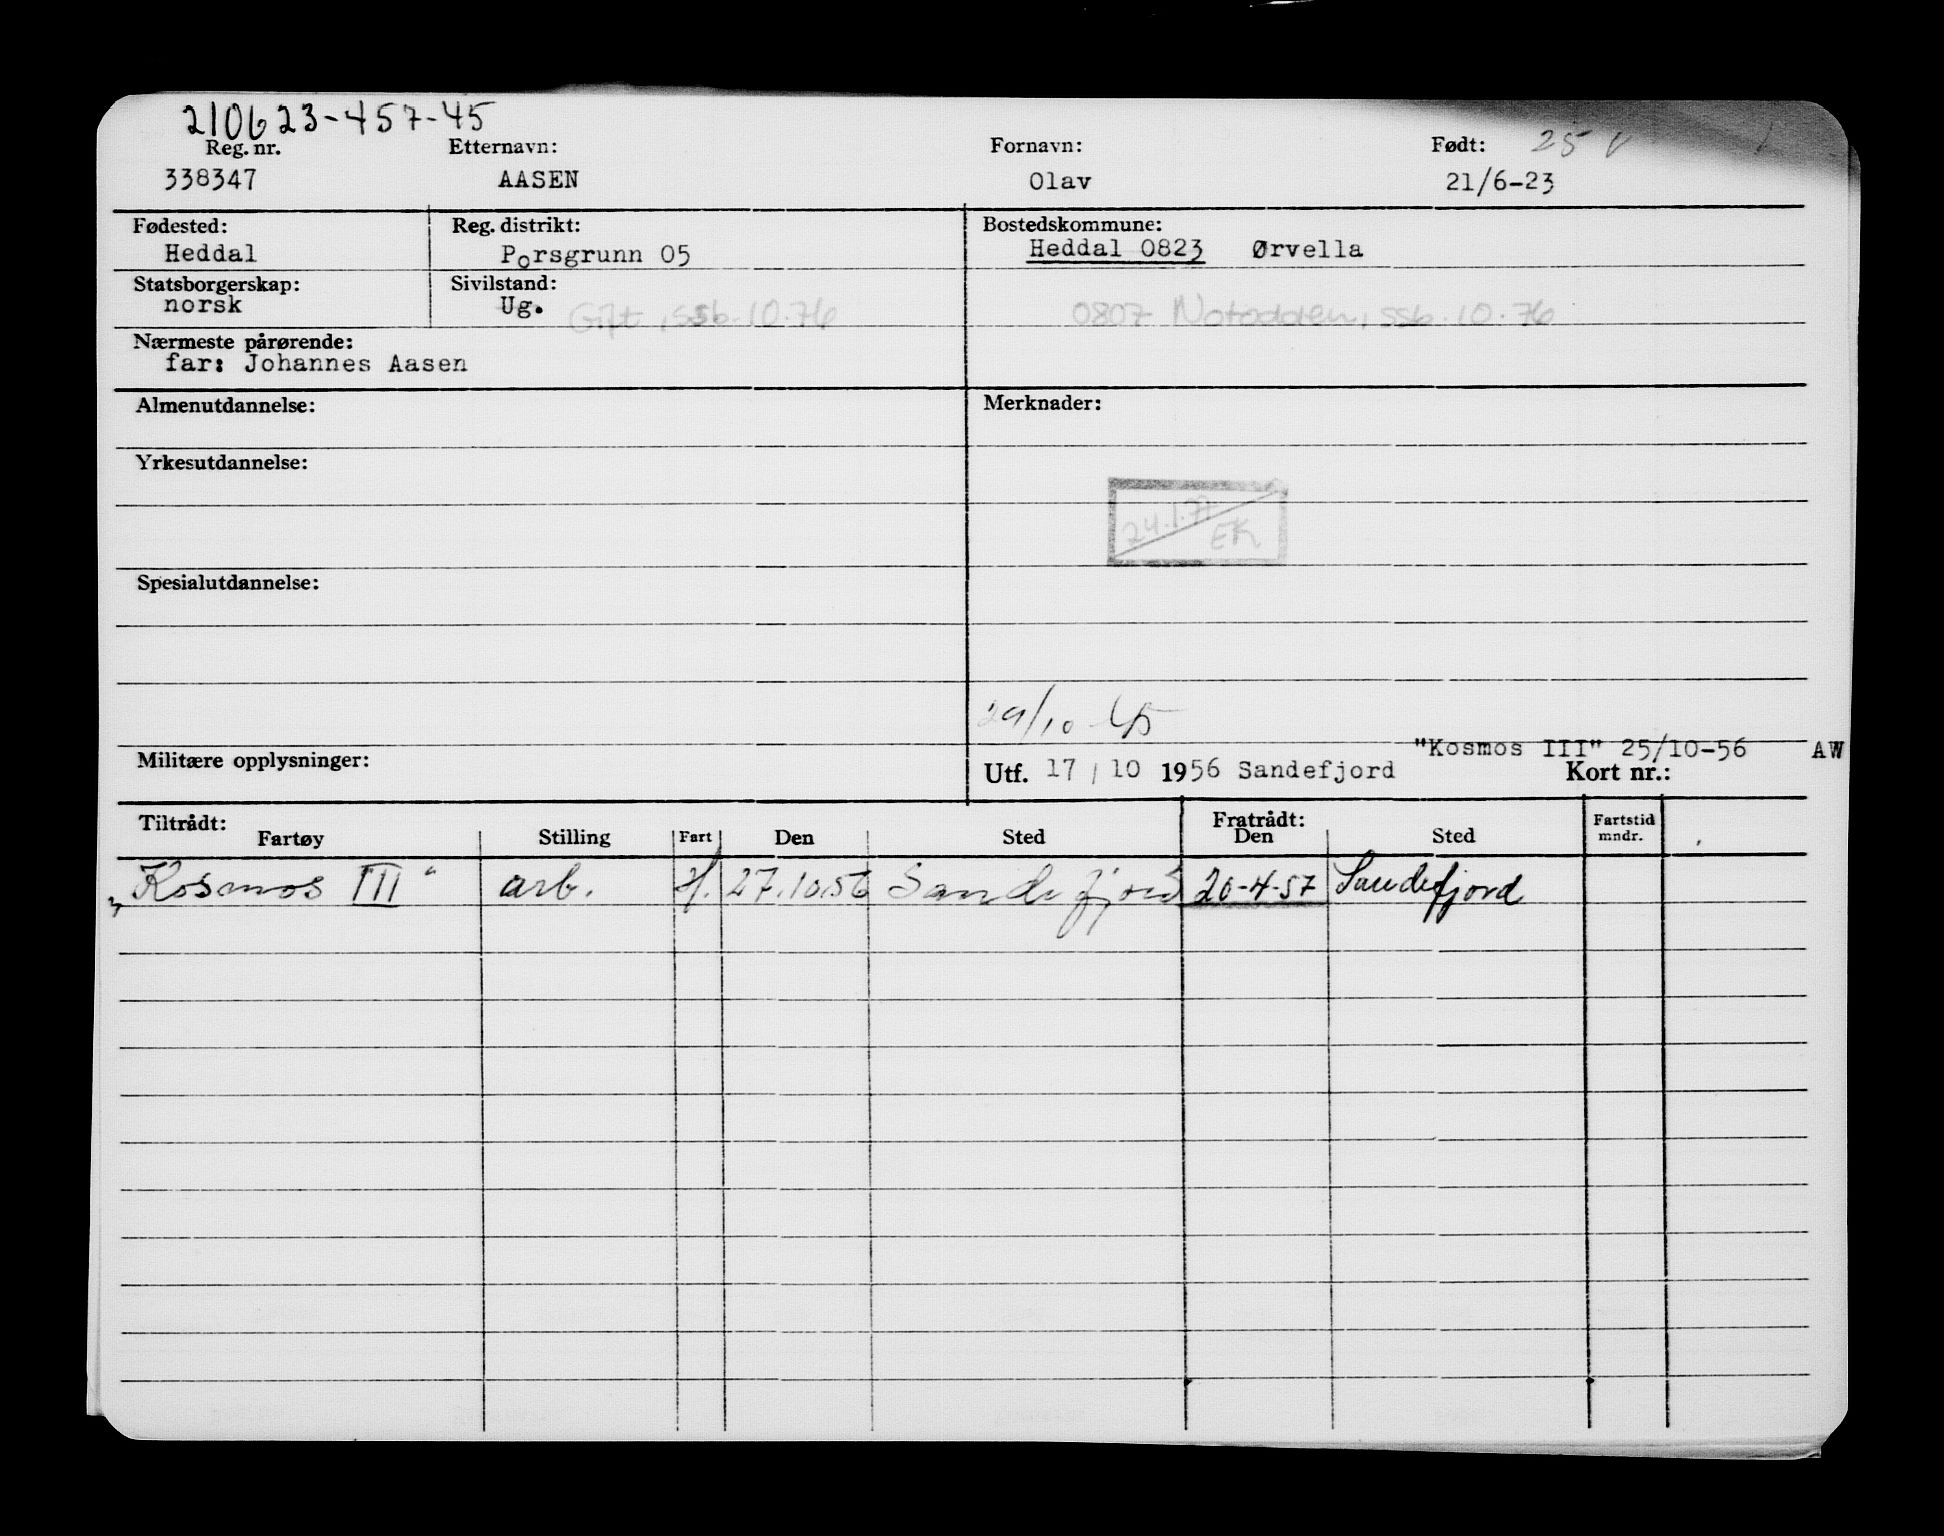 210623-457-45
Reg. nr. Etternavn: Fornavn: Født: 25
338347 AASEN Olav 21/6-23
Fødested: Reg. distrikt: Bostedskommune:
Heddal Porsgrunn 05 Heddal 0823 Ørvella
Statsborgerskap: Sivilstand:
norsk Ug. Gift, ssb. 10.76 0807 Notodden, ssb. 10.76
Nærmeste pårørende:
far: Johannes Aasen
Almenutdannelse: Merknader:
Yrkesutdannelse:
24.1.77
EK
Spesialutdannelse:
29/10-45
"Kosmos III" 25/10-56 AW
Militære opplysninger: Utf. 17/10 1956 Sandefjord Kort nr.:
Tiltrådt: Fratrådt: Fartstid
Fartøy Stilling Fart Den Sted Den Sted mndr.
„Kosmos III" arb. H. 27.10.56 Sandefjord 20-4-57 Sandefjord